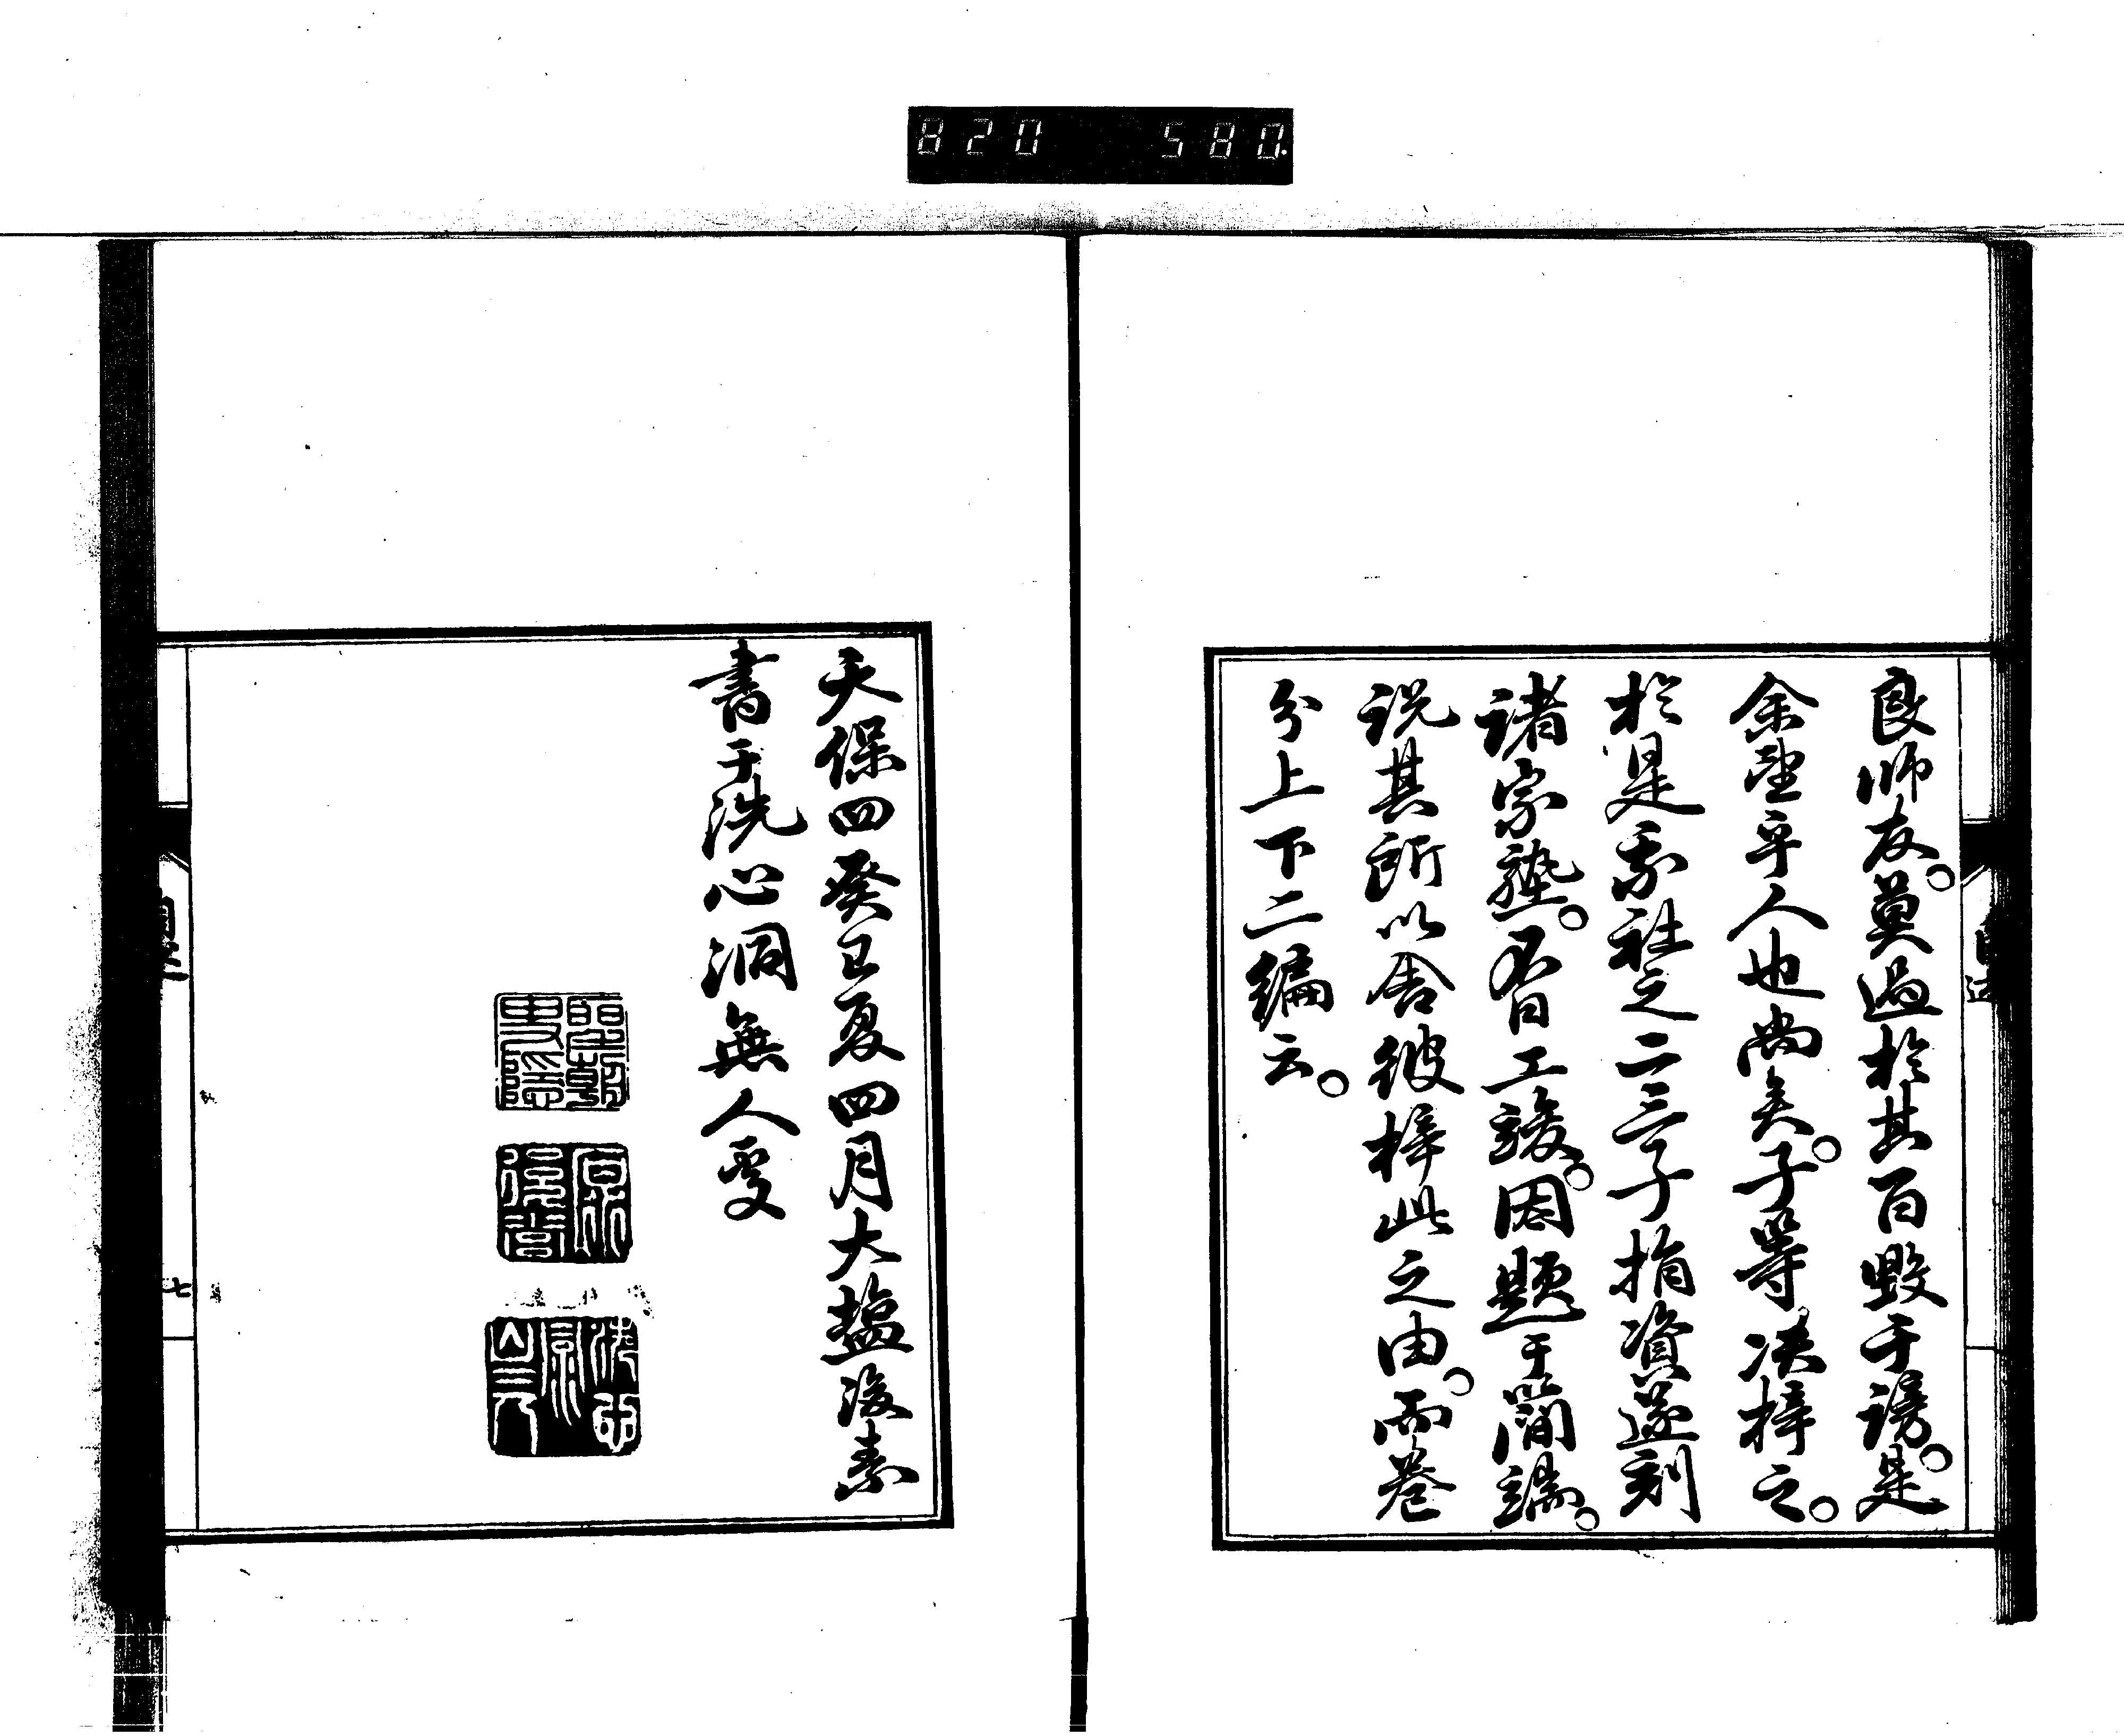 820 580
良師友。莫過於其百毀千謗。是
余望乎人也尚矣。子等決梓之。
於是吾社之二三子捐資遂刻
諸家塾。不日工竣。因題于簡端。
說其所以舍彼梓此之由。而卷
分上下二編云。
天保四癸巳夏四月大鹽後素
書于洗心洞無人處
七